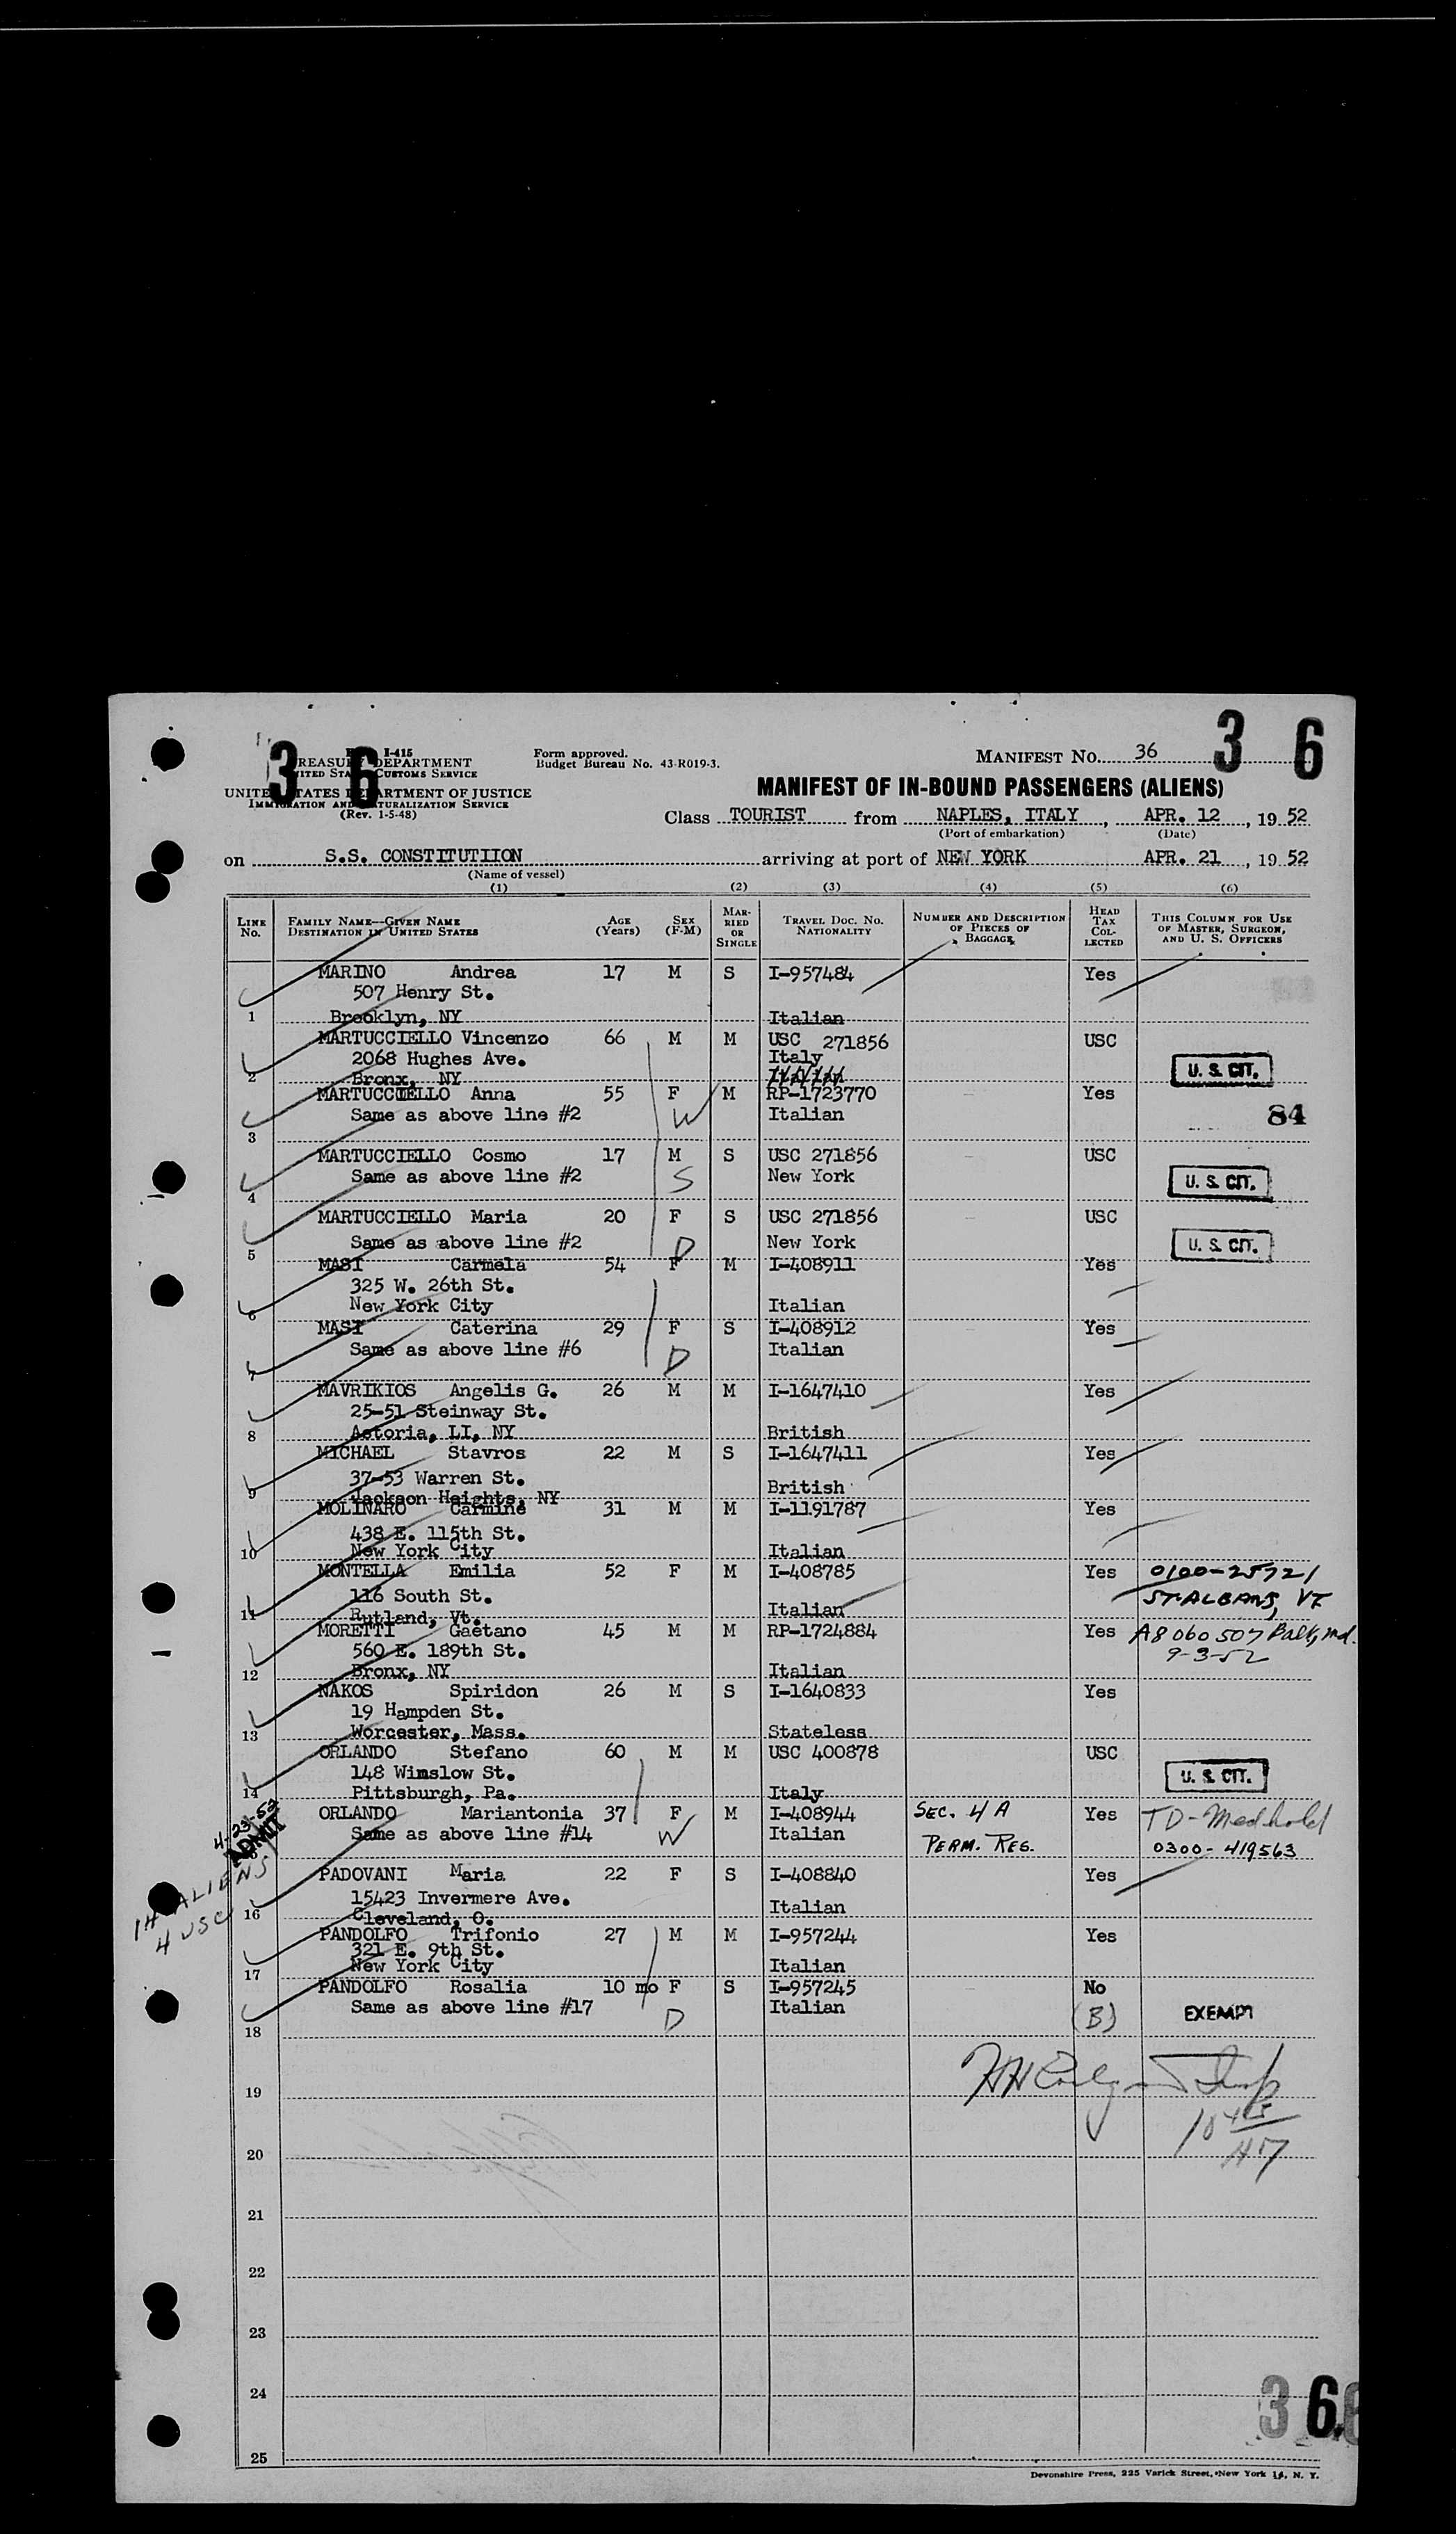 3 6
3 6
I-415
TREASURY DEPARTMENT
UNITED STATES CUSTOMS SERVICE
UNITED STATES DEPARTMENT OF JUSTICE
IMMIGRATION AND NATURALIZATION SERVICE
(Rev. 1-5-48)
Form approved.
Budget Bureau No. 43-R019-3.
MANIFEST NO. 36
MANIFEST OF IN-BOUND PASSENGERS (ALIENS)
Class TOURIST from NAPLES, ITALY, APR. 12, 1952
(Port of embarkation) (Date)
on S.S. CONSTITUTIION arriving at port of NEW YORK APR. 21, 1952
(Name of vessel)
(1) (2) (3) (4) (5) (6)
LINE NO. FAMILY NAME—GIVEN NAME DESTINATION IN UNITED STATES AGE (Years) SEX (F-M) MARRIED OR SINGLE TRAVEL DOC. NO. NATIONALITY NUMBER AND DESCRIPTION OF PIECES OF BAGGAGE HEAD TAX COLLECTED THIS COLUMN FOR USE OF MASTER, SURGEON, AND U. S. OFFICERS
MARINO Andrea 17 M S I-957484 Yes
507 Henry St.
1 Brooklyn, NY Italian
MARTUCCIELLO Vincenzo 66 M M USC 271856 USC
2068 Hughes Ave. Italy
2 Bronx, NY U. S. CIT.
MARTUCCIELLO Anna 55 F M RP-1723770 Yes
Same as above line #2 W Italian 84
3
MARTUCCIELLO Cosmo 17 M S USC 271856 USC
Same as above line #2 S New York U. S. CIT.
4
MARTUCCIELLO Maria 20 F S USC 271856 USC
Same as above line #2 D New York U. S. CIT.
5
MASI Carmela 54 F M I-408911 Yes
325 W. 26th St.
6 New York City Italian
MASI Caterina 29 F S I-408912 Yes
Same as above line #6 D Italian
7
MAVRIKIOS Angelis G. 26 M M I-1647410 Yes
25-51 Steinway St.
8 Astoria, LI, NY British
MICHAEL Stavros 22 M S I-1647411 Yes
37-53 Warren St. British
9 Jackson Heights, NY
MOLINARO Carmine 31 M M I-1191787 Yes
438 E. 115th St.
10 New York City Italian
MONTELLA Emilia 52 F M I-408785 Yes 0100-25721
116 South St. ST. ALBANS, VT
11 Rutland, Vt. Italian
MORETTI Gaetano 45 M M RP-1724884 Yes A8 060 507 Balt, Md.
560 E. 189th St. 9-3-52
12 Bronx, NY Italian
NAKOS Spiridon 26 M S I-1640833 Yes
19 Hampden St.
13 Worcester, Mass. Stateless
ORLANDO Stefano 60 M M USC 400878 USC
148 Winslow St. U. S. CIT.
14 Pittsburgh, Pa. Italy
4-23-52 ADMIT
ORLANDO Mariantonia 37 F M I-408944 SEC. 4 A Yes TD-Medhold
Same as above line #14 W Italian PERM. REG. 0300-419563
14 ALIENS
4 USC
PADOVANI Maria 22 F S I-408840 Yes
15423 Invermere Ave. Italian
16 Cleveland, O.
PANDOLFO Trifonio 27 M M I-957244 Yes
321 E. 9th St.
17 New York City Italian
PANDOLFO Rosalia 10 mo F S I-957245 No
Same as above line #17 D Italian (B) EXEMPT
18
19
20
21
22
23
24
25
36
Devonshire Press, 225 Varick Street, New York 14, N. Y.